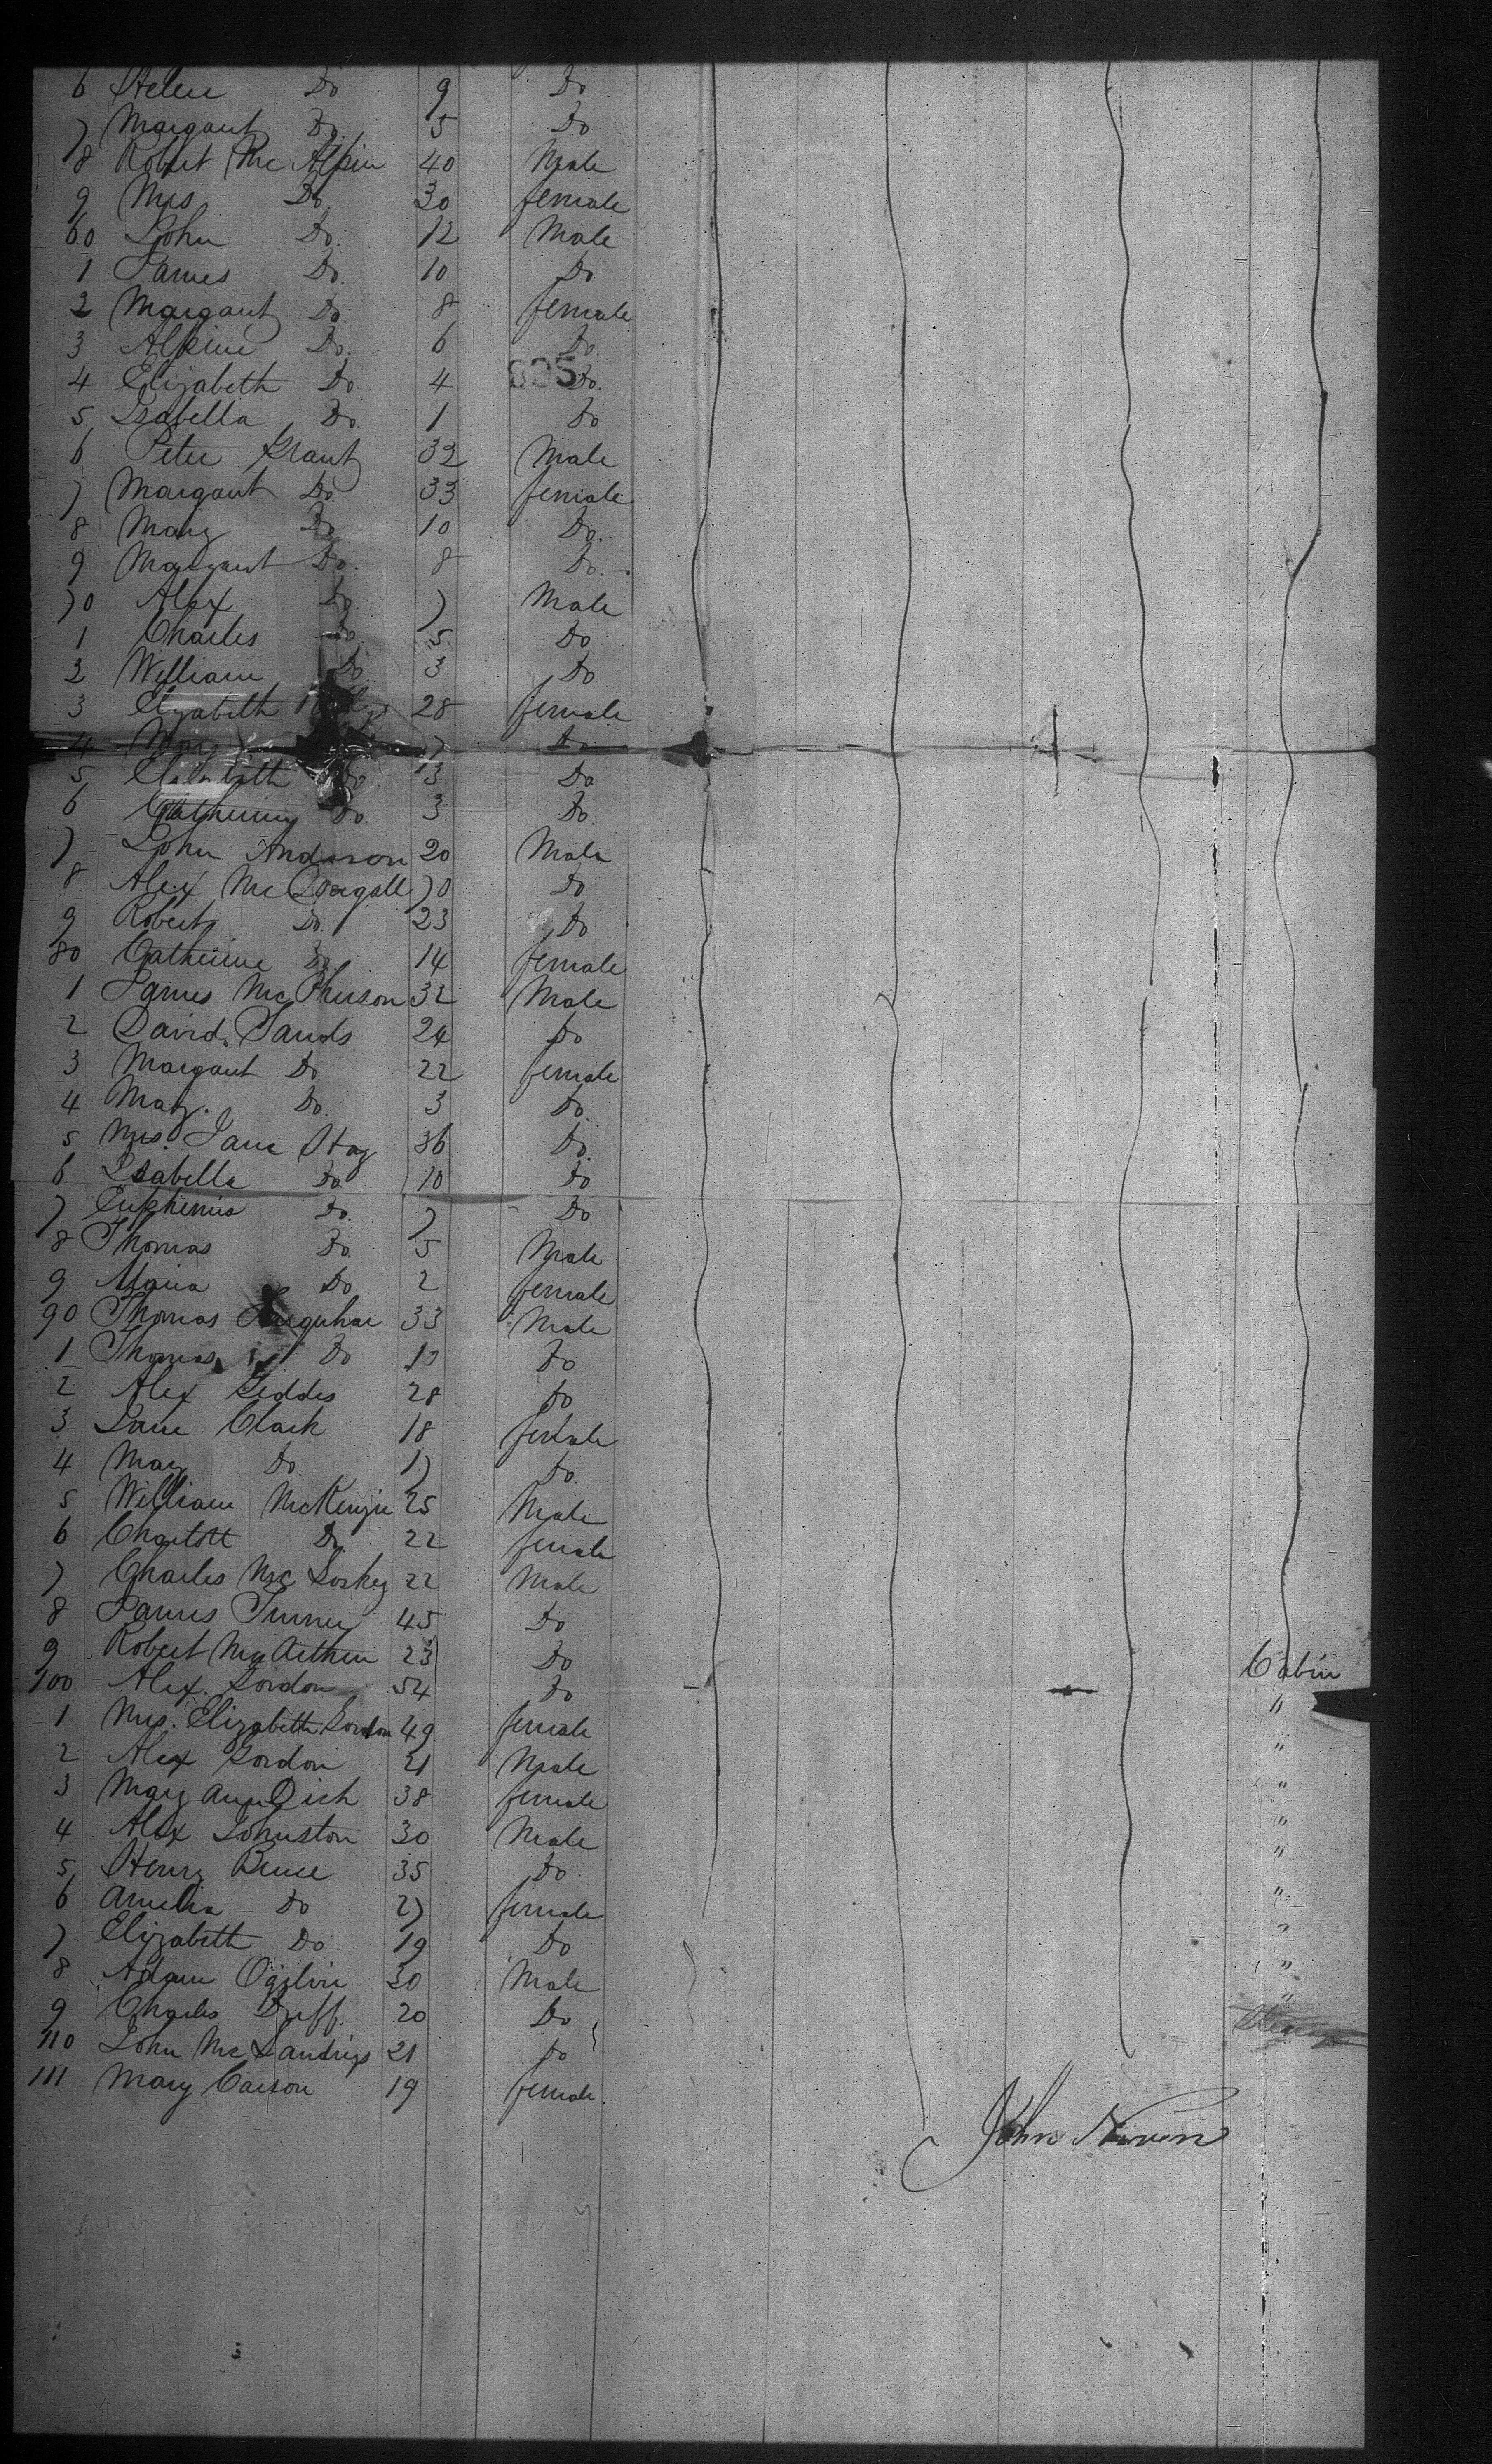 6 Helen Do 9 Do
7 Margaret Do 5 Do
8 Robert McAlpin 40 Male
9 Mrs Do 30 female
60 John Do. 12 Male
1 James Do. 10 Do
2 Margaret Do. 8 female
3 Alpine Do. 6 Do.
4 Elizabeth Do. 4 Do.
5 Isabella Do. 1 Do
6 Peter Grant 32 Male
7 Margaret Do. 33 female
8 Mary Do 10 Do.
9 Margaret Do. 8 Do.
70 Alex Do. 7 Male
1 Charles Do. 5 Do
2 William Do 3 Do
3 Elizabeth 28 female
4 Mary 7 Do
5 Elizabeth Do. 13 Do
6 Catherine Do. 3 Do.
7 John Anderson 20 Male
8 Alex McDougall 70 Do
9 Robert Do. 23 Do
80 Catherine Do. 14 female
1 James McPherson 32 Male
2 David Sands 24 Do
3 Margaret Do 22 female
4 Mary. Do. 3 Do.
5 Mrs. Jane Hay 36 Do.
6 Isabella Do 10 Do
7 Euphemia Do. 7 Do
8 Thomas Do. 5 Male
9 Maria Do 2 female
90 Thomas 33 Male
1 Thomas Do Do
2 Alex Geddes 28 Do
3 Jane Clark 18 female
4 Mary Do. 17 Do.
5 William McKenzie 25 Male
6 Charlott Do. 22 female
7 Charles Mc 22 Male
8 James Turner 45 Do
9 Robert McArthur 23 Do
Cabin
100 Alex. Gordon 54 Do "
1 Mrs. Elizabeth Gordon 49 female "
2 Alex Gordon 21 Male "
3 Mary Ann Dick 38 female "
4 Alex Johnston 30 Male "
5 Henry Bruce 35 Do "
6 Amelia Do 27 female "
7 Elizabeth Do 19 Do "
8 Adam Ogilvie 30 Male "
9 Charles Duff. 20 Do
110 John Mc 21 Do
111 Mary Carson 19 female
John Niven